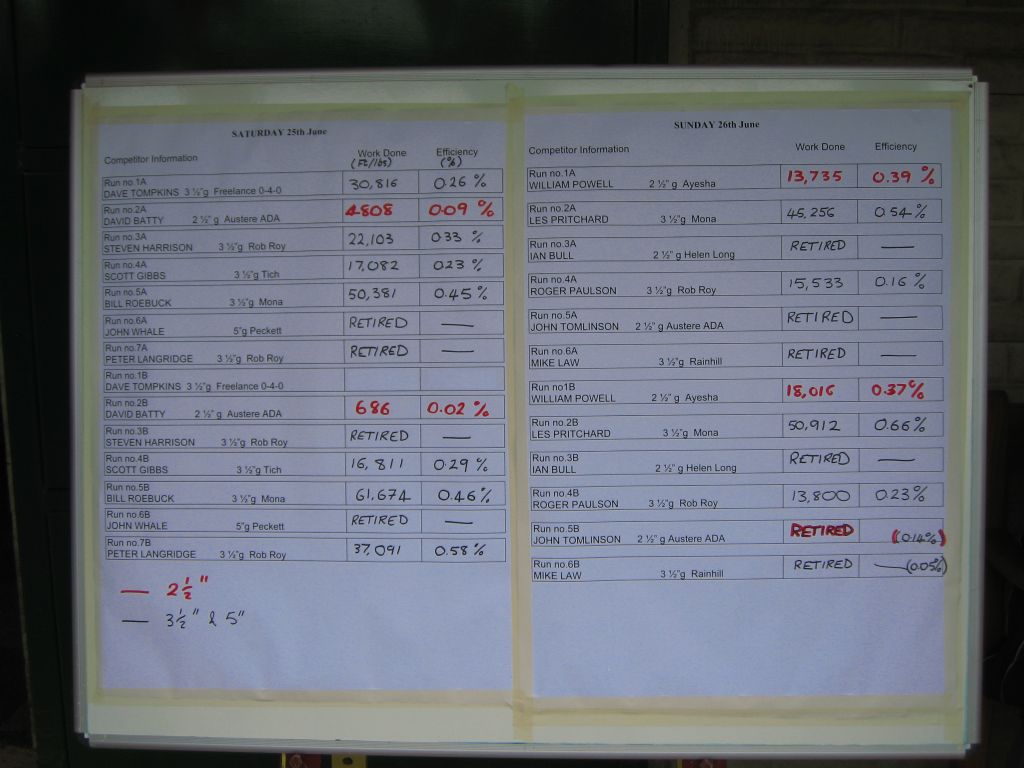 SATURDAY 25th June
Competitor Information Work Done Efficiency
(Ft/lbs) (%)
Run no.1A
DAVE TOMPKINS 3 ½"g Freelance 0-4-0 30,816 0.26 %
Run no.2A
DAVID BATTY 2 ½" g Austere ADA 4808 0.09 %
Run no.3A
STEVEN HARRISON 3 ½"g Rob Roy 22,103 0.33 %
Run no.4A
SCOTT GIBBS 3 ½"g Tich 17,082 0.23 %
Run no.5A
BILL ROEBUCK 3 ½"g Mona 50,381 0.45 %
Run no.6A
JOHN WHALE 5"g Peckett RETIRED —
Run no.7A
PETER LANGRIDGE 3 ½"g Rob Roy RETIRED —
Run no.1B
DAVE TOMPKINS 3 ½"g Freelance 0-4-0
Run no.2B
DAVID BATTY 2 ½" g Austere ADA 686 0.02 %
Run no.3B
STEVEN HARRISON 3 ½"g Rob Roy RETIRED —
Run no.4B
SCOTT GIBBS 3 ½"g Tich 16,811 0.29 %
Run no.5B
BILL ROEBUCK 3 ½"g Mona 61,674 0.46%
Run no.6B
JOHN WHALE 5"g Peckett RETIRED —
Run no.7B
PETER LANGRIDGE 3 ½"g Rob Roy 37,091 0.58 %
— 2½"
— 3½" & 5"
SUNDAY 26th June
Competitor Information Work Done Efficiency
Run no.1A
WILLIAM POWELL 2 ½" g Ayesha 13,735 0.39 %
Run no.2A
LES PRITCHARD 3 ½"g Mona 45,256 0.54 %
Run no.3A
IAN BULL 2 ½" g Helen Long RETIRED —
Run no.4A
ROGER PAULSON 3 ½"g Rob Roy 15,533 0.16 %
Run no.5A
JOHN TOMLINSON 2 ½" g Austere ADA RETIRED —
Run no.6A
MIKE LAW 3 ½"g Rainhill RETIRED —
Run no1B
WILLIAM POWELL 2 ½" g Ayesha 18,016 0.37%
Run no.2B
LES PRITCHARD 3 ½"g Mona 50,912 0.66%
Run no.3B
IAN BULL 2 ½" g Helen Long RETIRED —
Run no.4B
ROGER PAULSON 3 ½"g Rob Roy 13,800 0.23%
Run no.5B
JOHN TOMLINSON 2 ½" g Austere ADA RETIRED (0.14%)
Run no.6B
MIKE LAW 3 ½"g Rainhill RETIRED — (0.05%)